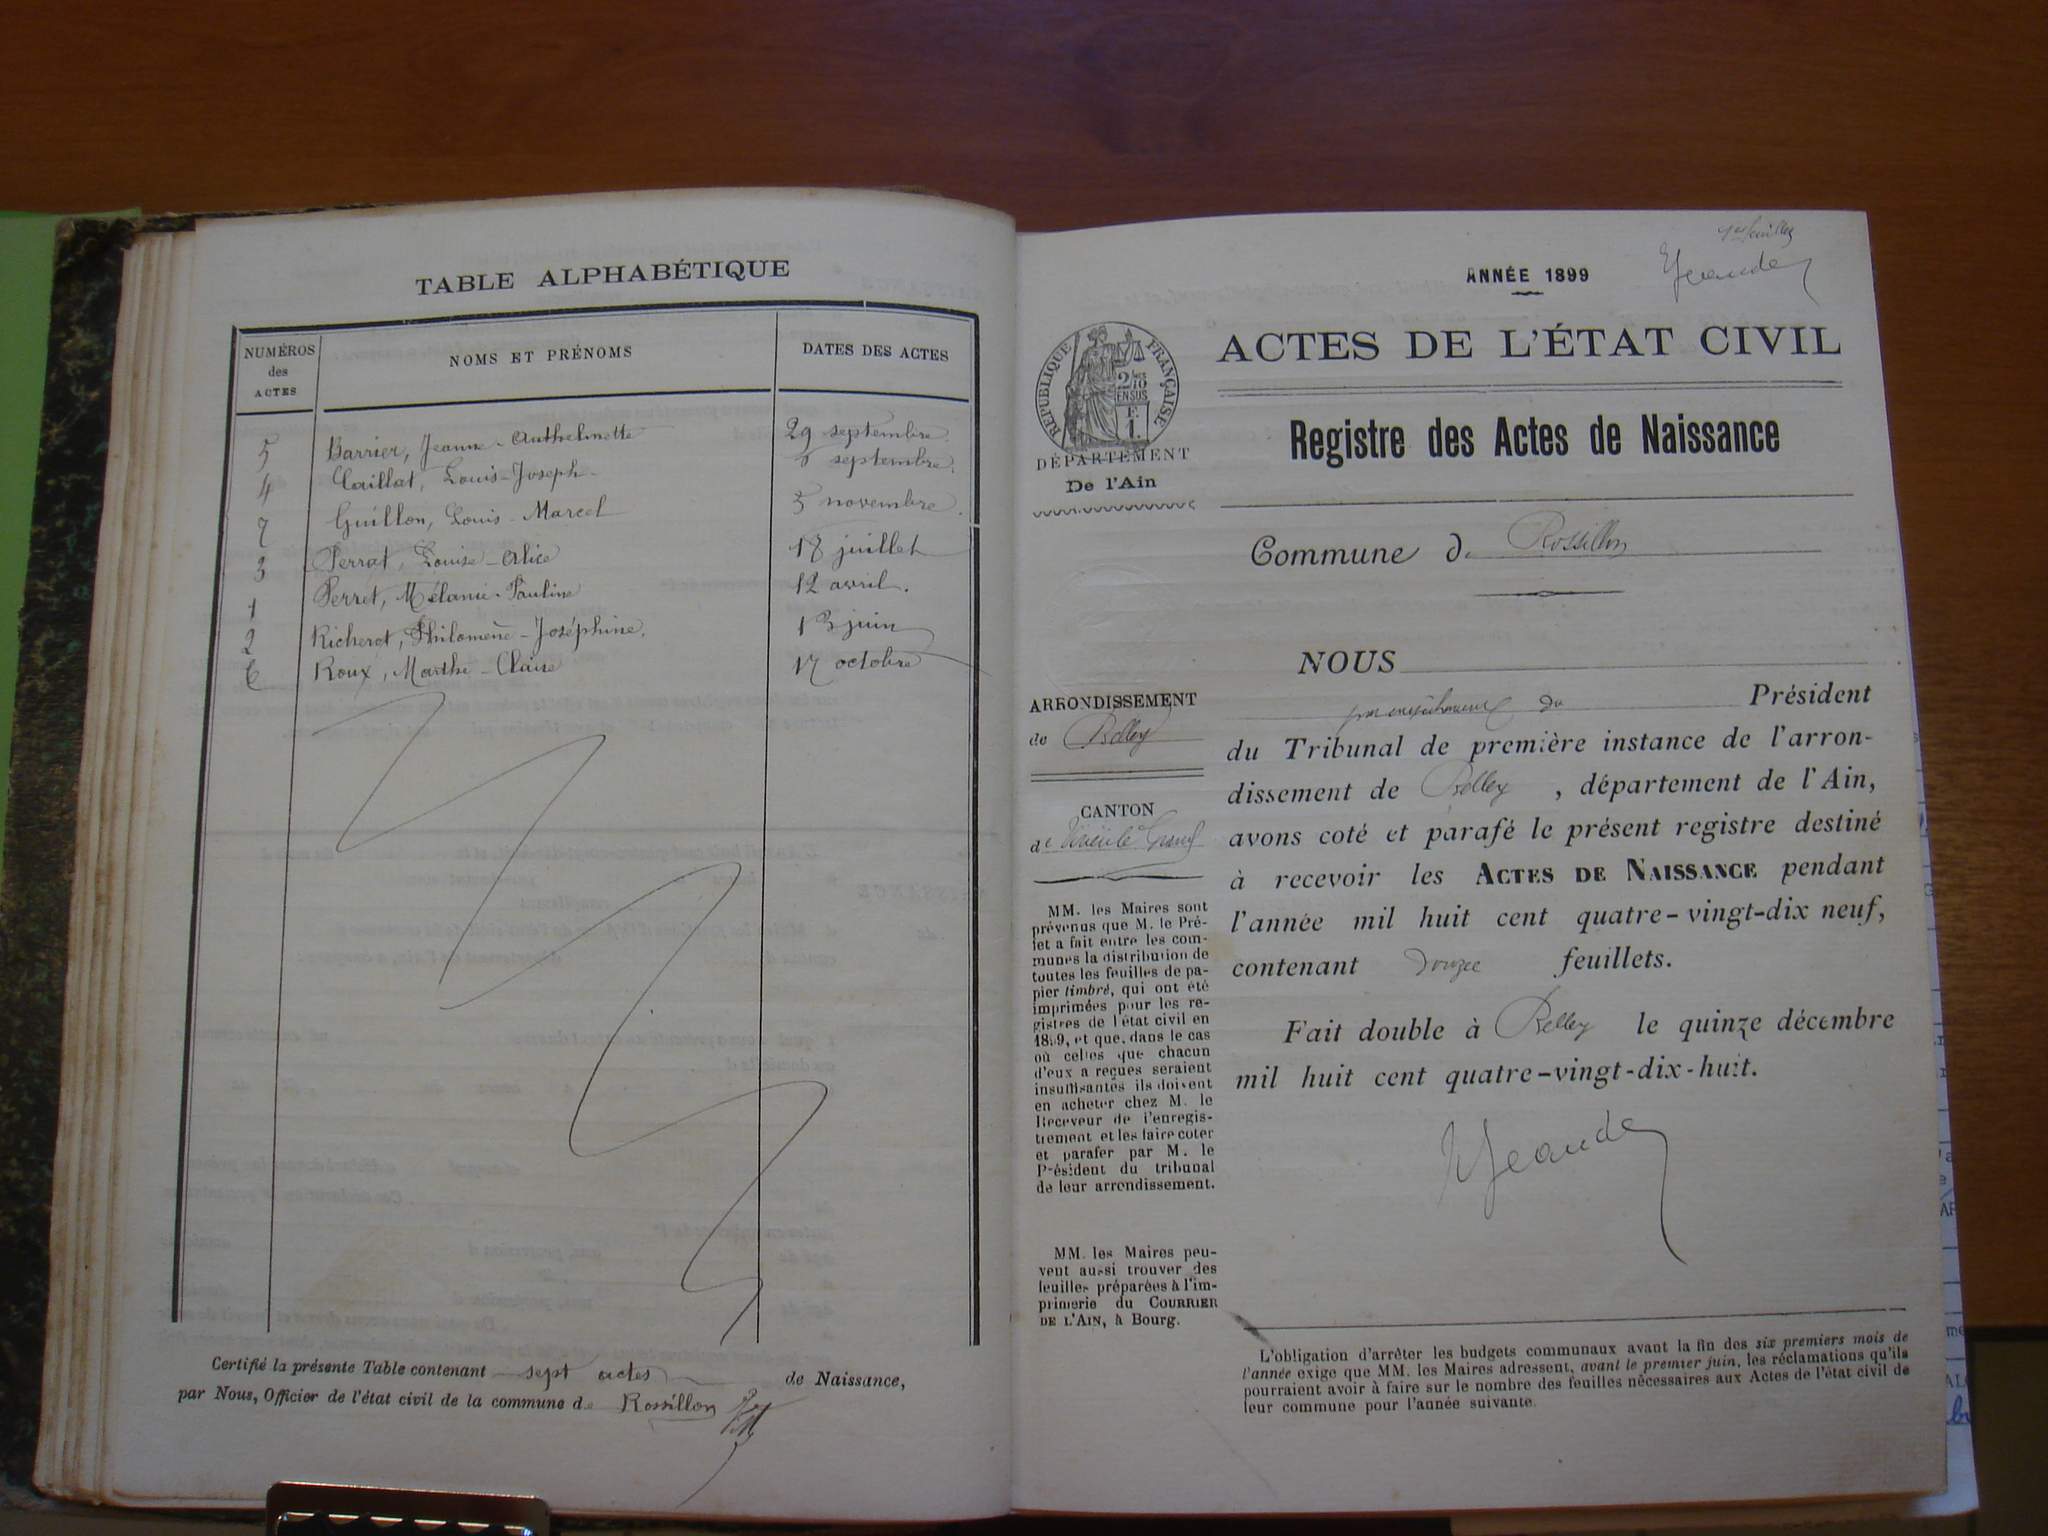 TABLE ALPHABÉTIQUE
NUMÉROS des ACTES NOMS ET PRÉNOMS DATES DES ACTES
5 Barrier, Jeanne-Anthelmette 29 septembre.
4 Caillat, Louis-Joseph septembre.
7 Guillon, Louis-Marcel 5 novembre.
3 Perrat, Louise-Alice 18 juillet
1 Perret, Mélanie-Pauline 12 avril.
2 Richerot, Philomène-Joséphine. 13 juin
6 Roux, Marthe-Claire 17 octobre
Certifié la présente Table contenant sept actes de Naissance,
par Nous, Officier de l'état civil de la commune de Rossillon
ANNÉE 1899
RÉPUBLIQUE FRANÇAISE
2/10 EN SUS
F. 1.
ACTES DE L'ÉTAT CIVIL
Registre des Actes de Naissance
DÉPARTEMENT
De l'Ain
Commune de Rossillon
ARRONDISSEMENT
de Belley
CANTON
de Virieu le Grand
MM. les Maires sont
prévenus que M. le Pré-
fet a fait entre les com-
munes la distribution de
toutes les feuilles de pa-
pier timbré, qui ont été
imprimées pour les re-
gistres de l'état civil en
1899, et que, dans le cas
où celles que chacun
d'eux a reçues seraient
insuffisantes ils doivent
en acheter chez M. le
Receveur de l'enregis-
trement et les faire coter
et parafer par M. le
Président du tribunal
de leur arrondissement.
MM. les Maires peu-
vent aussi trouver des
feuilles préparées à l'im-
primerie du COURRIER
DE L'AIN, à Bourg.
NOUS
par empêchement du Président
du Tribunal de première instance de l'arron-
dissement de Belley, département de l'Ain,
avons coté et parafé le présent registre destiné
à recevoir les ACTES DE NAISSANCE pendant
l'année mil huit cent quatre-vingt-dix neuf,
contenant douze feuillets.
Fait double à Belley le quinze décembre
mil huit cent quatre-vingt-dix-huit.
L'obligation d'arrêter les budgets communaux avant la fin des six premiers mois de
l'année exige que MM. les Maires adressent, avant le premier juin, les réclamations qu'ils
pourraient avoir à faire sur le nombre des feuilles nécessaires aux Actes de l'état civil de
leur commune pour l'année suivante.